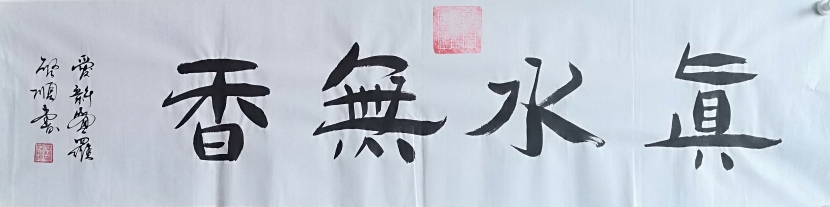 真水無香
愛新覺羅
啟順書